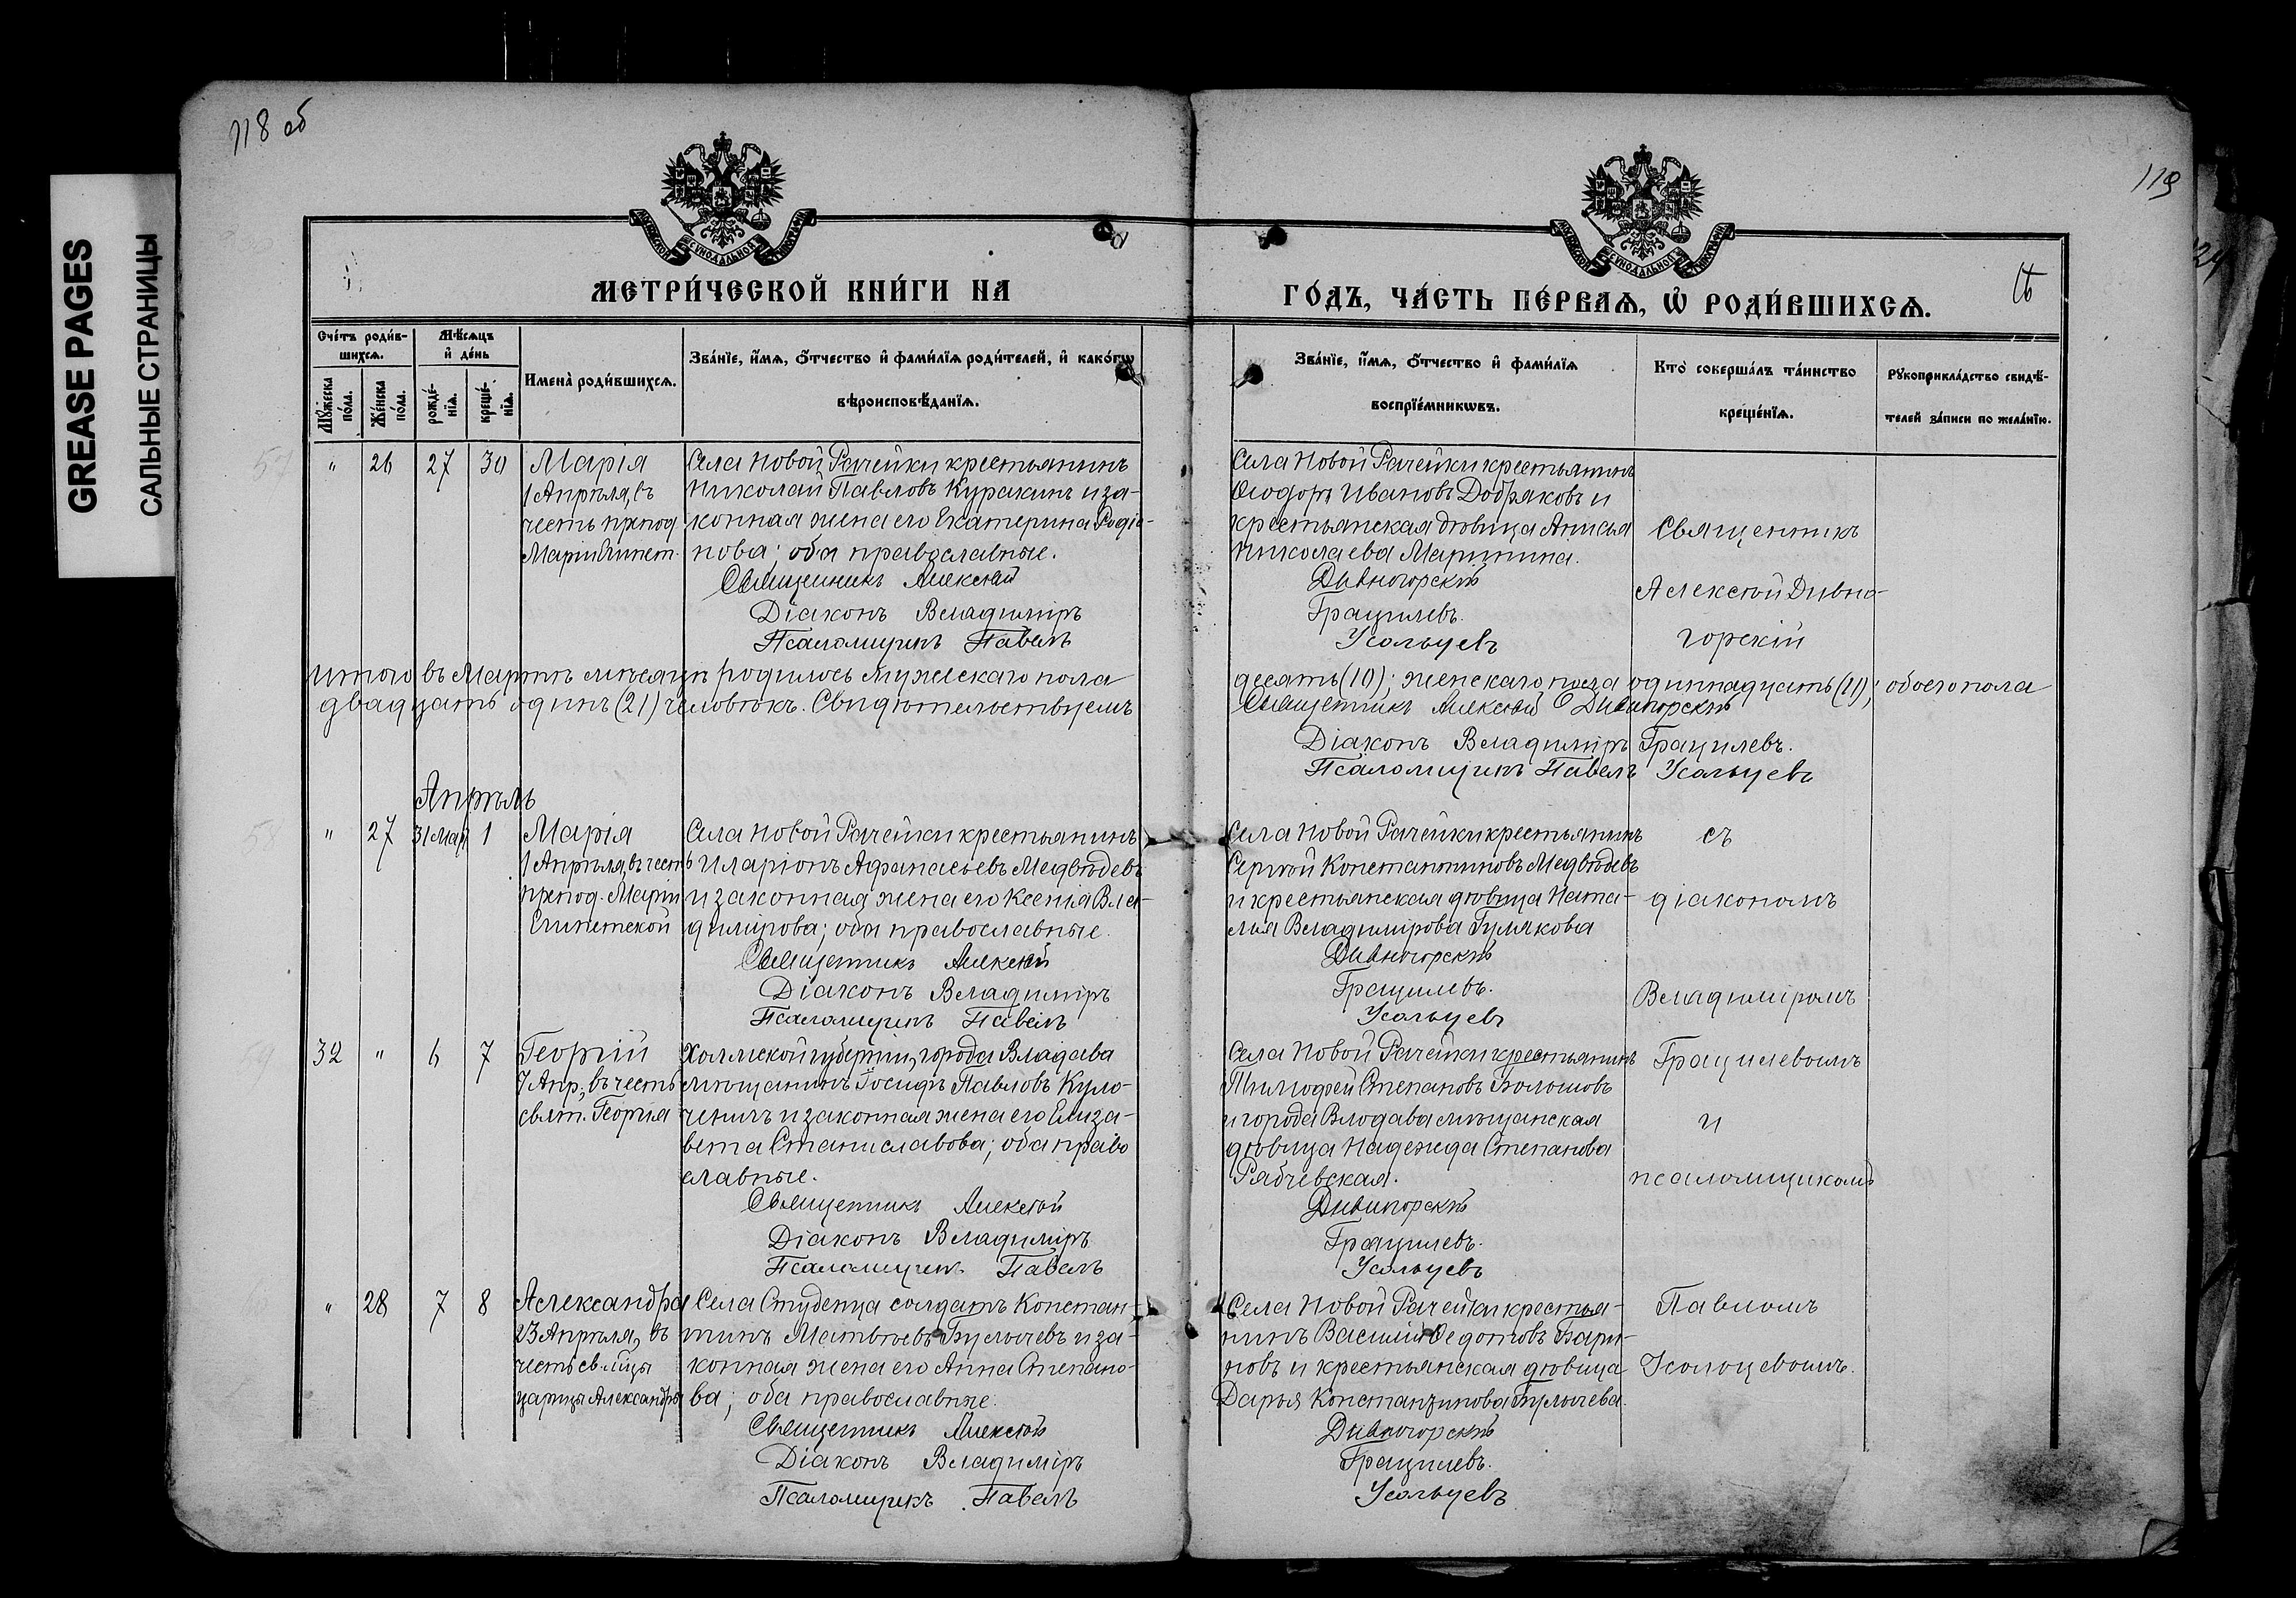 GREASE PAGES
САЛЬНЫЕ СТРАНИЦЫ
118 об
119
МЕТРИ́ЧЕСКОЙ КНИ́ГИ НА
ГО́ДЪ, ЧА́СТЬ ПЕ́РВАѦ, Ѡ҆ РОДИ́ВШИХСѦ.
Сче́тъ роди́в-
шихсѧ.
Мѣ́сѧцъ
и҆ де́нь
Мꙋ́жеска по́ла.
Же́нска по́ла.
рожде́-
нїѧ.
креще́-
нїѧ.
Имена̀ роди́вшихсѧ.
Зва́нїе, и҆́мѧ, ѻ҆́тчество и҆ фами́лїѧ роди́телей, и҆ како́гѡ
вѣроисповѣ́данїѧ.
Зва́нїе, и҆́мѧ, ѻ҆́тчество и҆ фами́лїѧ
воспрїе́мникѡвъ.
Кто̀ соверша́лъ та́инство
креще́нїѧ.
Рꙋкоприкла́дство свидѣ́-
телей за́писи по жела́нїю.
" 26 27 30 Марія
1 Апрѣля, въ
честь препод.
Маріи Египет.
Села Новой Рачейки крестьянинъ
Николай Павловъ Куракинъ и за-
конная жена его Екатерина Родіо-
нова; оба православные.
Священникъ Алексѣй
Діаконъ Владиміръ
Псаломщикъ Павелъ
Села Новой Рачейки крестьянинъ
Ѳеодоръ Ивановъ Добряковъ и
крестьянская дѣвица Анисья
Николаева
Дивногорскій
Грацилевъ.
Усольцевъ
Священникъ
Алексѣй Дивно-
горскій
Итого въ Мартѣ мѣсяцѣ родилось мужескаго пола
десять (10); женскаго пола одиннадцать (11); обоего пола
двадцать одинъ (21) человѣкъ. Свидѣтельствуемъ
Священникъ Алексѣй Дивногорскій
Діаконъ Владиміръ Грацилевъ.
Псаломщикъ Павелъ Усольцевъ
Апрѣль
" 27 31 Мар 1 Марія
1 Апрѣля, въ честь
препод. Маріи
Египетской
Села Новой Рачейки крестьянинъ
Иларіонъ Афанасьевъ Медвѣдевъ
и законная жена его Ксенія Вла-
димірова; оба православные.
Священникъ Алексѣй
Діаконъ Владиміръ
Псаломщикъ Павелъ
Села Новой Рачейки крестьянинъ
Сергѣй Константиновъ Медвѣдевъ
и крестьянская дѣвица Ната-
лія Владимірова Гулякова
Дивногорскій
Грацилевъ.
Усольцевъ
съ
діакономъ
Владиміромъ
32 " 6 7 Георгій
7 Апр., въ честь
свят. Георгія
Холмской губерніи, города Владава
мѣщанинъ Іосифъ Павловъ Куло-
чекичъ и законная жена его Елиза-
вета Станиславова; оба право
славные.
Священникъ Алексѣй
Діаконъ Владиміръ
Псаломщикъ Павелъ
Села Новой Рачейки крестьянинъ
Тимофей Степановъ Болошовъ
и города Влодава мѣщанская
дѣвица Надежда Степанова
Рябчевская.
Дивногорскій
Грацилевъ.
Усольцевъ
Грацилевымъ
и
псаломщикомъ
" 28 7 8 Александра
23 Апрѣля, въ
честь св. мцы
царицы Александры
Села Студенца солдатъ Констан-
тинъ Матвѣевъ Булычевъ и за-
конная жена его Анна Степано-
ва; оба православные.
Священникъ Алексѣй
Діаконъ Владиміръ
Псаломщикъ Павелъ
Села Новой Рачейки крестья-
нинъ Василій Ѳедотовъ Бари-
новъ и крестьянская дѣвица
Дарья Константинова Булычева.
Дивногорскій
Грацилевъ.
Усольцевъ
Павломъ
Усольцевымъ.